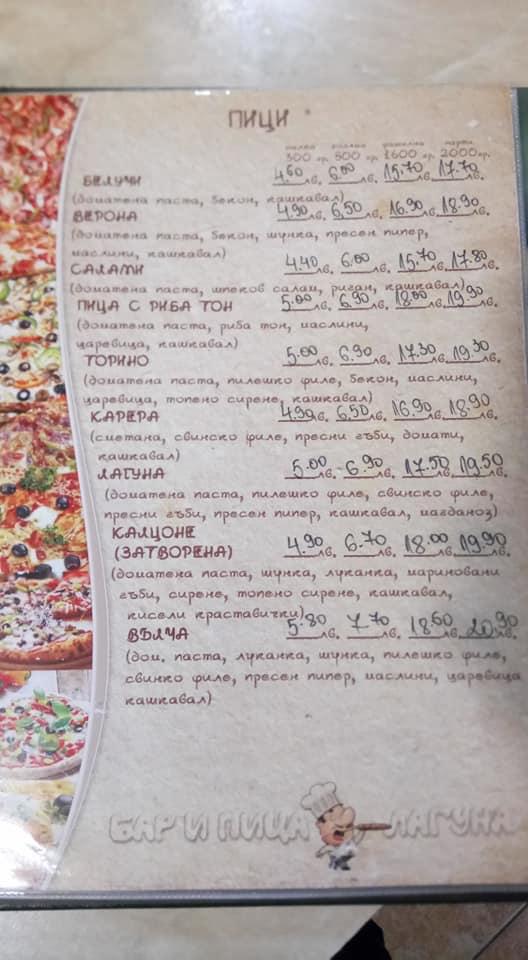 ПИЦИ
малка голяма фамилна парти
300 гр. 500 гр. 1600 гр. 2000гр.
БЕЛУЧИ 4.60лв. 6.00лв. 15.70лв. 17.70лв.
(доматена паста, бекон, кашкавал)
ВЕРОНА 4.90лв. 6.50лв. 16.90лв. 18.90лв.
(доматена паста, бекон, шунка, пресен пипер,
маслини, кашкавал)
САЛАМИ 4.40лв. 6.00лв. 15.70лв. 17.80лв.
(доматена паста, шпеков салам, риган, кашкавал)
ПИЦА С РИБА ТОН 5.00лв. 6.90лв. 18.00лв. 19.90лв.
(доматена паста, риба тон, маслини,
царевица, кашкавал)
ТОРИНО 5.00лв. 6.90лв. 17.30лв. 19.30лв.
(доматена паста, пилешко филе, бекон, маслини,
царевица, топено сирене, кашкавал)
КАРЕРА 4.90лв. 6.50лв. 16.90лв. 18.90лв.
(сметана, свинско филе, пресни гъби, домати,
кашкавал)
ЛАГУНА 5.00лв. 6.90лв. 17.50лв. 19.50лв.
(доматена паста, пилешко филе, свинско филе,
пресни гъби, пресен пипер, кашкавал, магданоз)
КАЛЦОНЕ
(ЗАТВОРЕНА) 4.90лв. 6.70лв. 18.00лв. 19.90лв.
(доматена паста, шунка, луканка, мариновани
гъби, сирене, топено сирене, кашкавал,
кисели краставички)
ВЪЛЧА 5.80лв. 7.70лв. 18.60лв. 20.90лв.
(дом. паста, луканка, шунка, пилешко филе,
свинко филе, пресен пипер, маслини, царевица
кашкавал)
БАР И ПИЦА ЛАГУНА